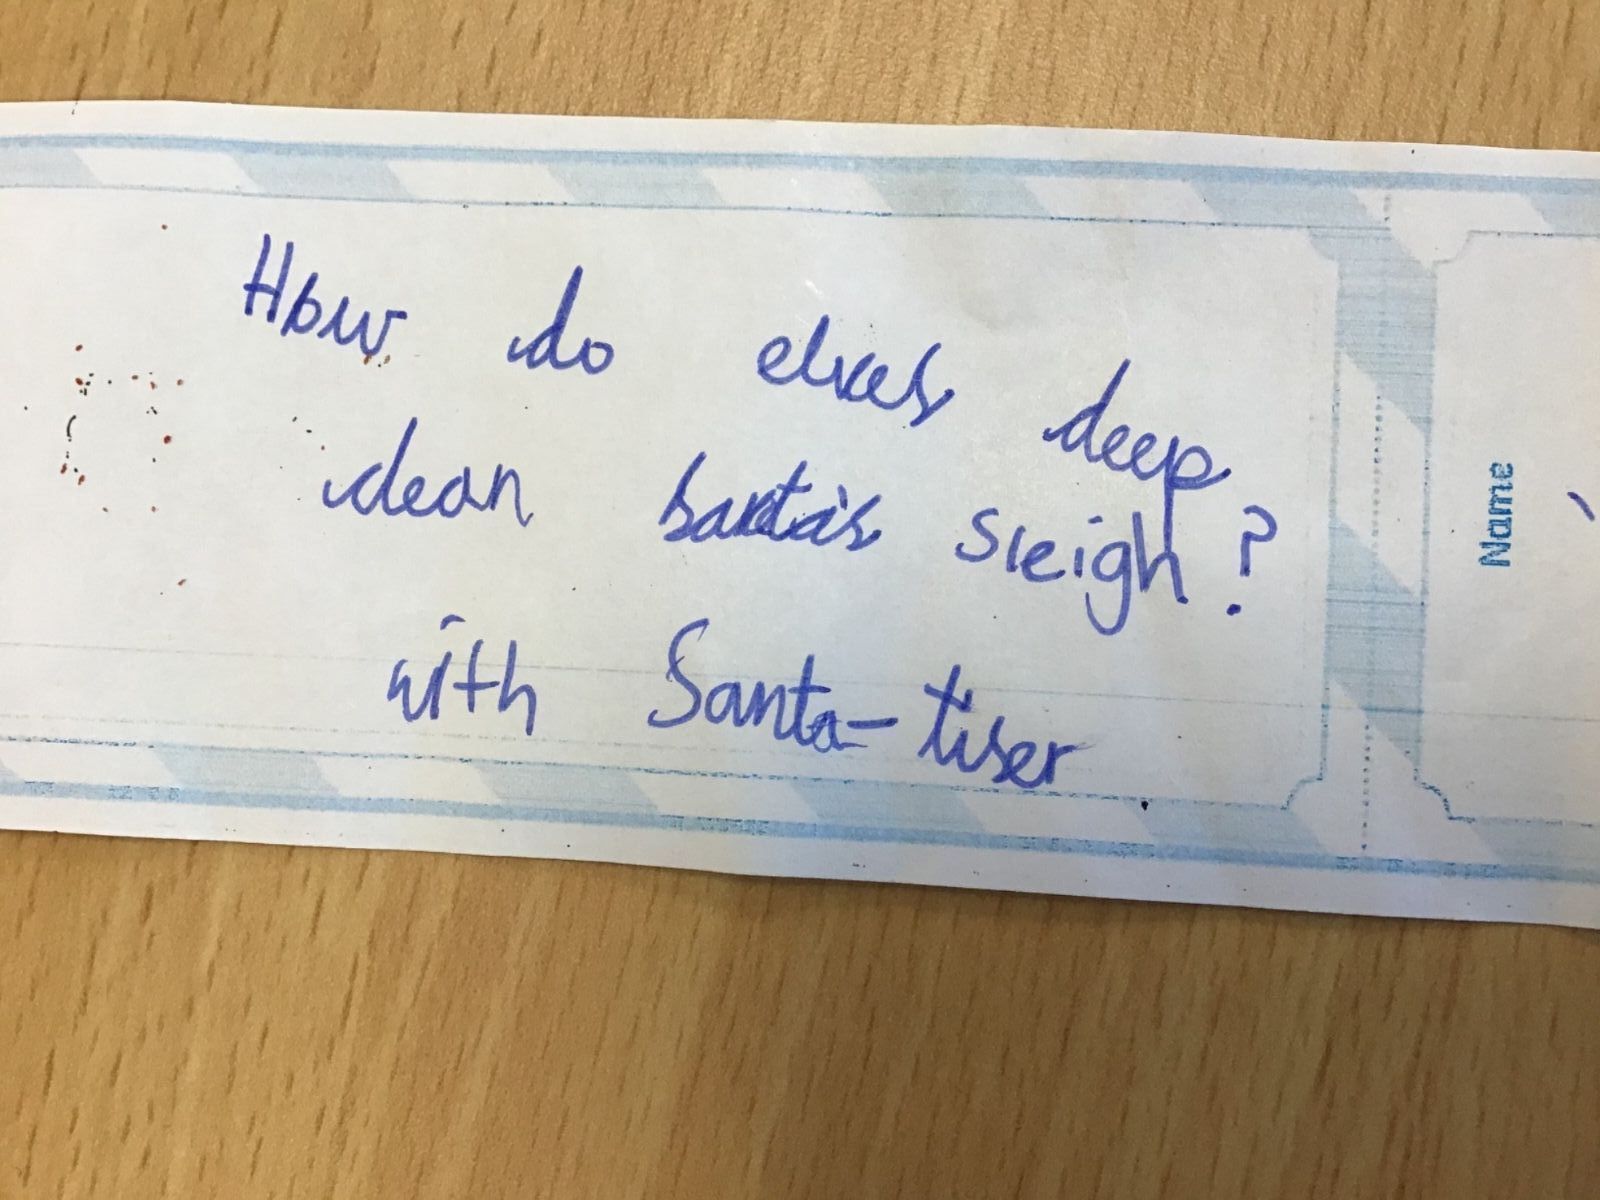 How do elves deep
clean santa's sleigh?
with Santa-tiser
Name